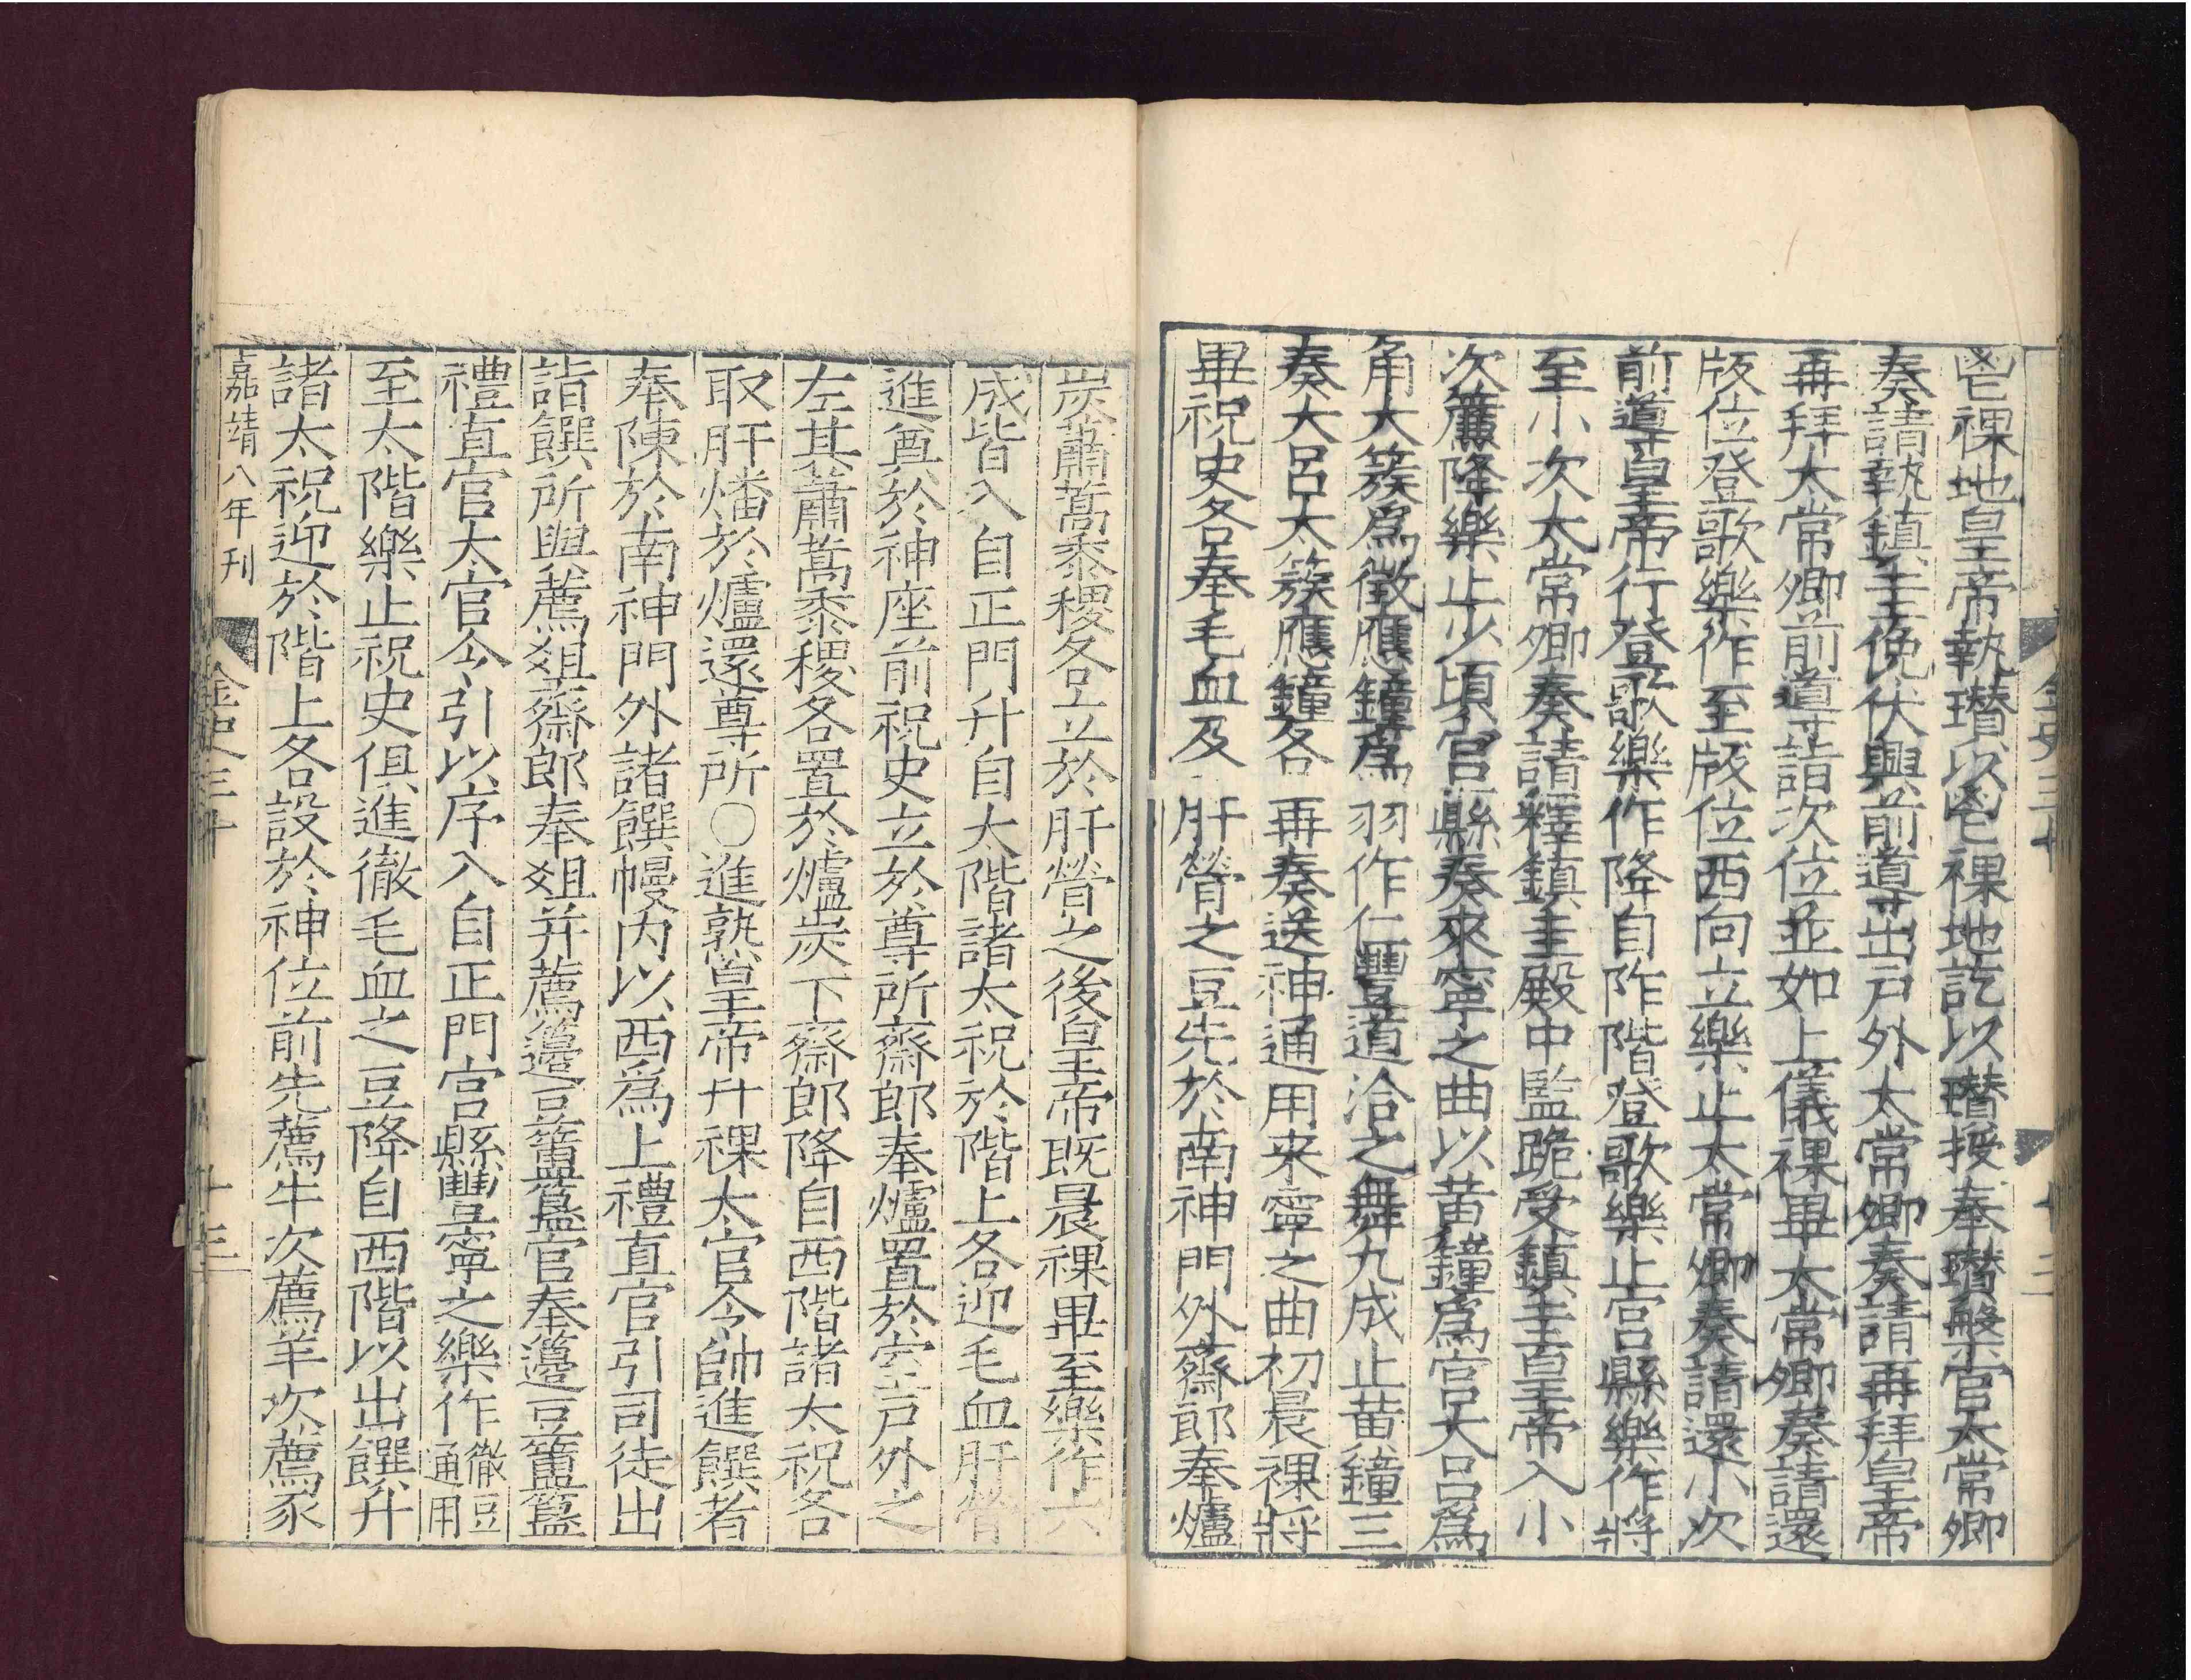 鬯祼地皇帝執瓚以鬯祼地訖以瓚授奉瓚槃官太常卿
奏請執鎮圭俛伏興前導出戶外太常卿奏請再拜皇帝
再拜太常卿前導詣次位並如上儀祼畢太常卿奏請還
版位登歌樂作至版位西向立樂止太常卿奏請還小次
前導皇帝行登歌樂作降自阼階登歌樂止宮縣樂作將
至小次太常卿奏請釋鎮圭殿中監跪受鎮圭皇帝入小
次簾降樂止少頃宮縣奏來寧之曲以黃鐘爲宮大呂爲
角太簇爲徵應鐘爲羽作仁豐道洽之舞九成止黃鐘三
奏大呂太簇應鐘各再奏送神通用来寧之曲初晨祼將
畢祝史各奉毛血及肝膋之豆先於南神門外齋郎奉爐
金史三十
十二
炭蕭蒿黍稷各立於肝膋之後皇帝既晨祼畢至樂作六
成皆入自正門升自太階諸太祝於階上各迎毛血肝膋
進奠於神座前祝史立於尊所齋郎奉爐置於室戶外之
左其蕭蒿黍稷各置於爐炭下齋郎降自西階諸太祝各
取肝燔於爐還尊所○進熟皇帝升祼太官令帥進饌者
奉陳於南神門外諸饌幔內以西爲上禮直官引司徒出
詣饌所與薦俎齋郎奉俎并薦籩豆簠簋官奉籩豆簠簋
禮直官太官令引以序入自正門宮縣豐寧之樂作徹豆通用
至太階樂止祝史俱進徹毛血之豆降自西階以出饌升
諸太祝迎於階上各設於神位前先薦牛次薦羊次薦豕
嘉靖八年刊
金史三十
十三